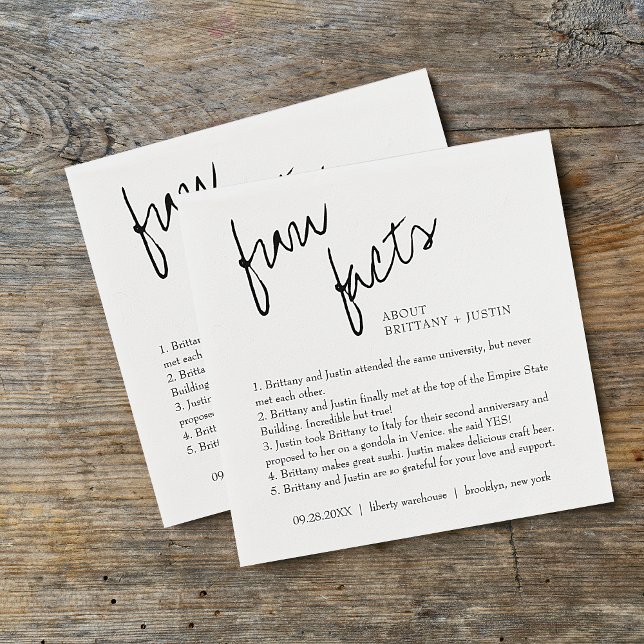 fun
facts
ABOUT
BRITTANY + JUSTIN
1. Brittany and Justin attended the same university, but never
met each other.
2. Brittany and Justin finally met at the top of the Empire State
Building. Incredible but true!
3. Justin took Brittany to Italy for their second anniversary and
proposed to her on a gondola in Venice. she said YES!
4. Brittany makes great sushi. Justin makes delicious craft beer.
5. Brittany and Justin are so grateful for your love and support.
09.28.20XX | liberty warehouse | brooklyn, new york
fun
1. Brittany
met each
2. Brittany
Building.
3. Justin
proposed
4. Brittany
5. Brittany
09.28